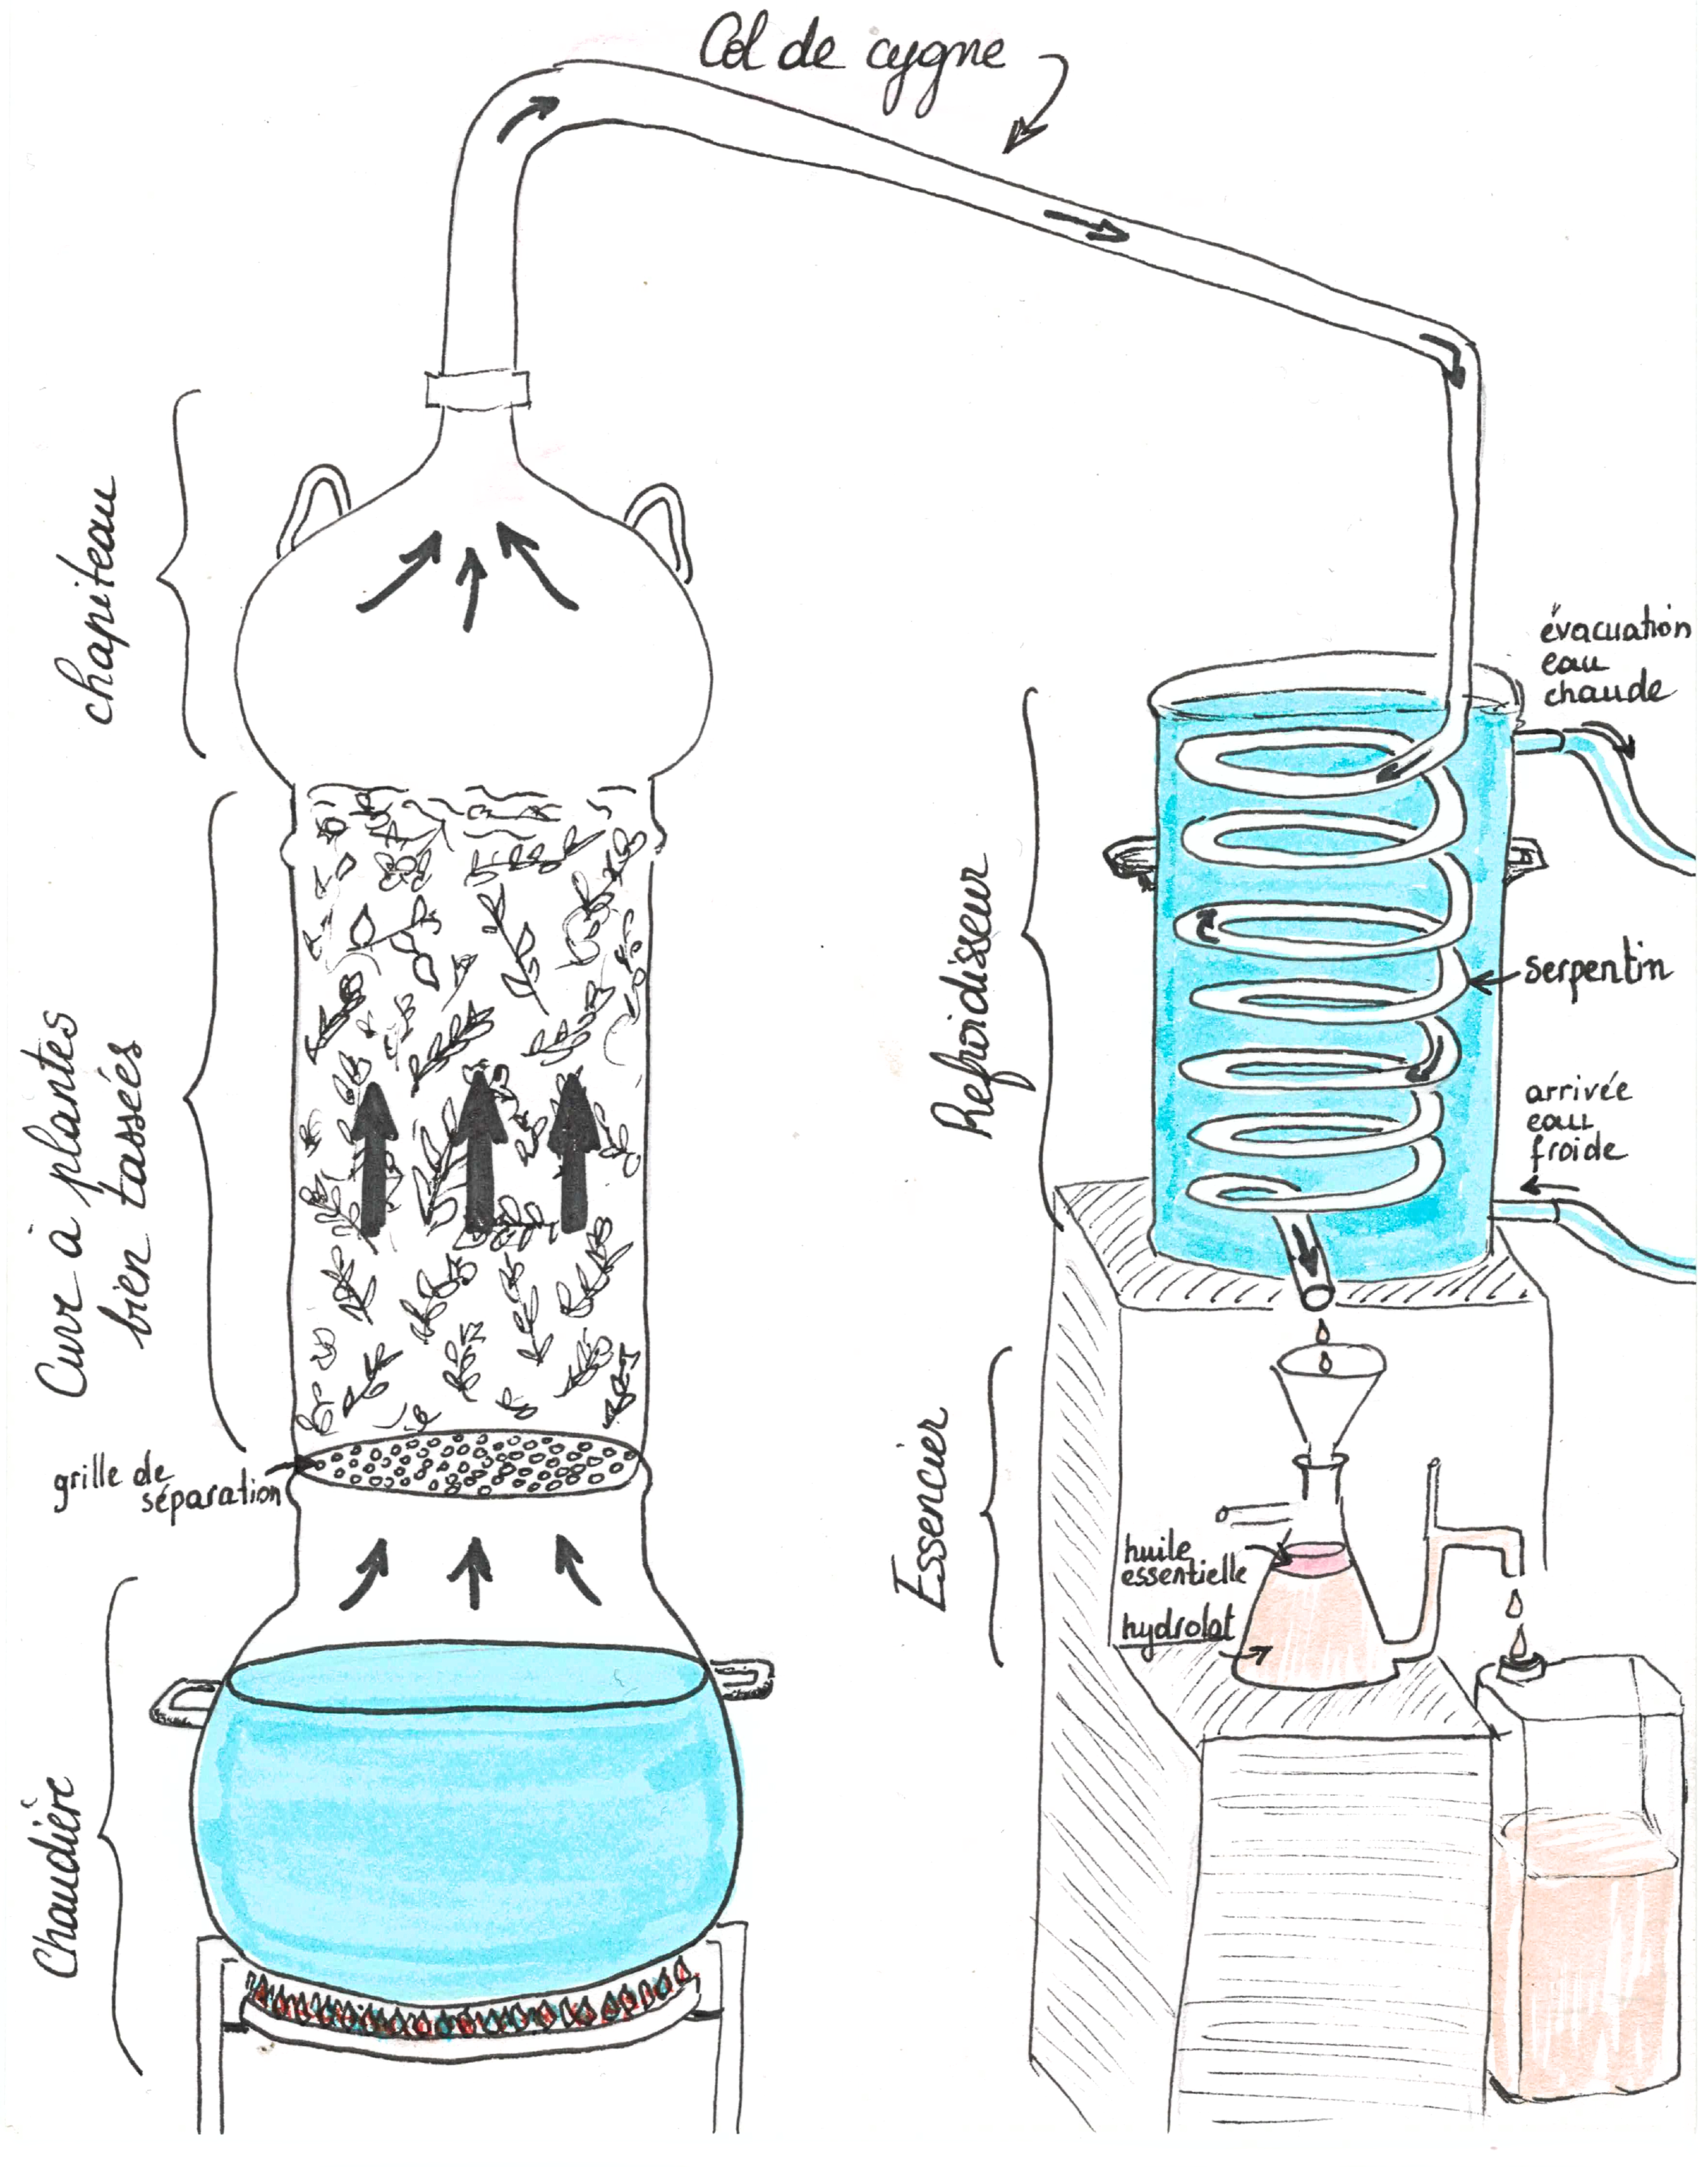 Col de cygne
chapiteau
évacuation
eau
chaude
Refroidisseur
serpentin
Cuve à plantes
bien tassées
arrivée
eau
froide
grille de
séparation
Essencier
huile
essentielle
hydrolat
Chaudière